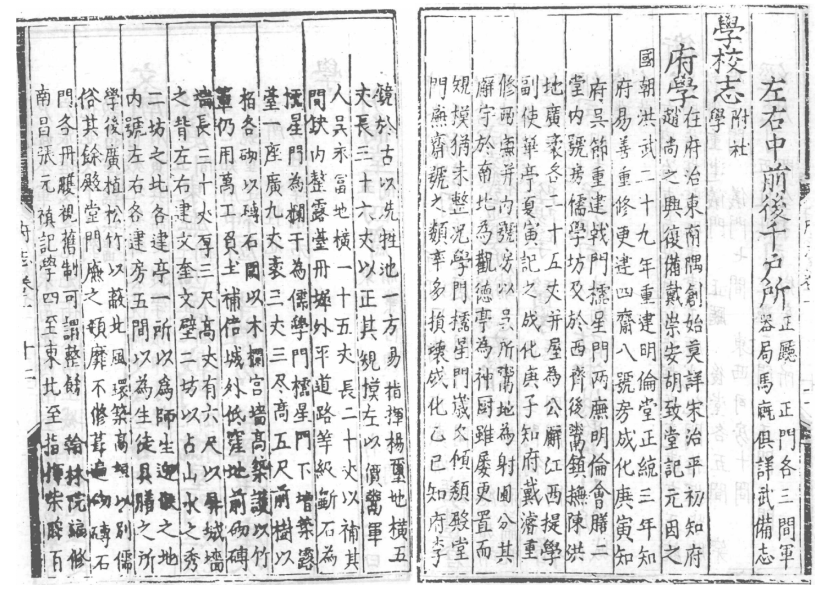 左右中前後千戶所正廳 正門各三間軍
器局馬厩俱詳武備志
學校志附社
學
府學在府治東南隅創始莫詳宋治平初知府
趙尚之興復備戴崇安胡致堂記元因之
國朝洪武二十九年重建明倫堂正統三年知
府易善重修更建四齋八號房成化庚寅知
府吳節重建戟門欞星門兩廡明倫會膳二
堂内號房儒學坊及於西齊後鬻鎮撫陳洪
地廣袤各二十五丈并屋為公廨江西提學
副使華亭夏寅記之成化庚子知府戴濬重
修兩廡并内號房以吳所鬻地為射圃分其
廨宇於南北為觀德亭為神厨雖屢更置而
規模猶未整况學門欞星門歲久傾頹殿堂
門廡齋號之類率多損壞成化乙巳知府李
鏡於古以洗牲池一方易指揮楊璽地橫五
丈長三十六丈以正其規模左以價鬻軍
人吳永富地橫一十五丈長二十丈以補其
間缺内整露臺丹墀外平道路等級斵石為
欞星門為欄干為儒學門欞星門下增築露
臺一座廣九丈袤三丈三尺高五尺前樹以
栢各砌以磚石圍以木欄宫墻髙築護以竹
葦仍用萬工負土補倍城外低窪地前砌磚
墻長三十丈厚三尺髙丈有六尺以屏城墻
之背左右建文奎文壁二坊以占山水之秀
二坊之北各建亭一所以為師生迎候之地
内號左右各建房五間以為生徒具膳之所
學後廣植松竹以蔽北風環築高垣以别儒
俗其餘殿堂門廡之頹靡不修葺遍砌磚石
門各丹雘視舊制可謂整飭 翰林院編修
南昌張元禎記學四至東北至指揮柴勝百